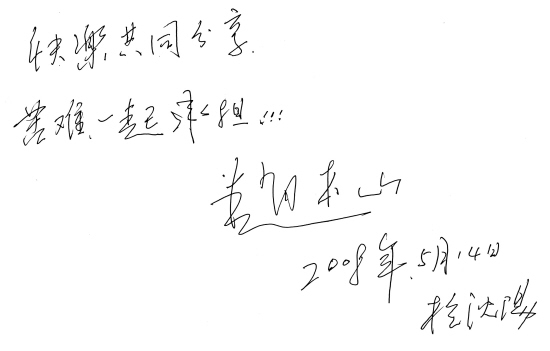 快樂共同分享.
苦难、一起承担!!!
黄鹤本山
2008年.5月.14日
於沈陽